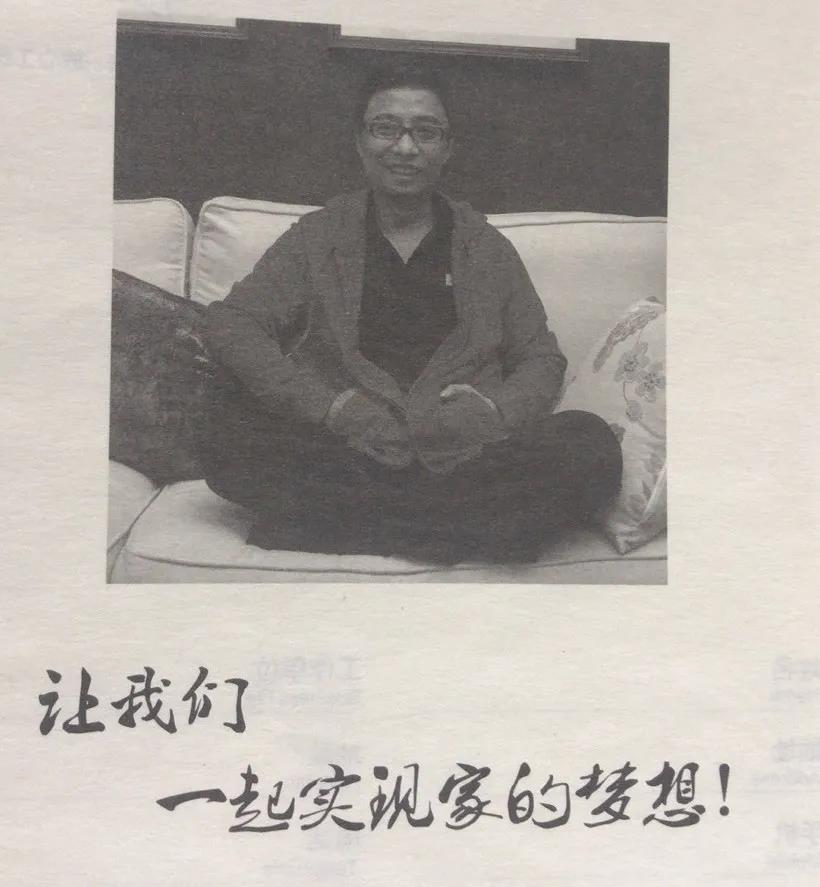 让我们
一起实现家的梦想！